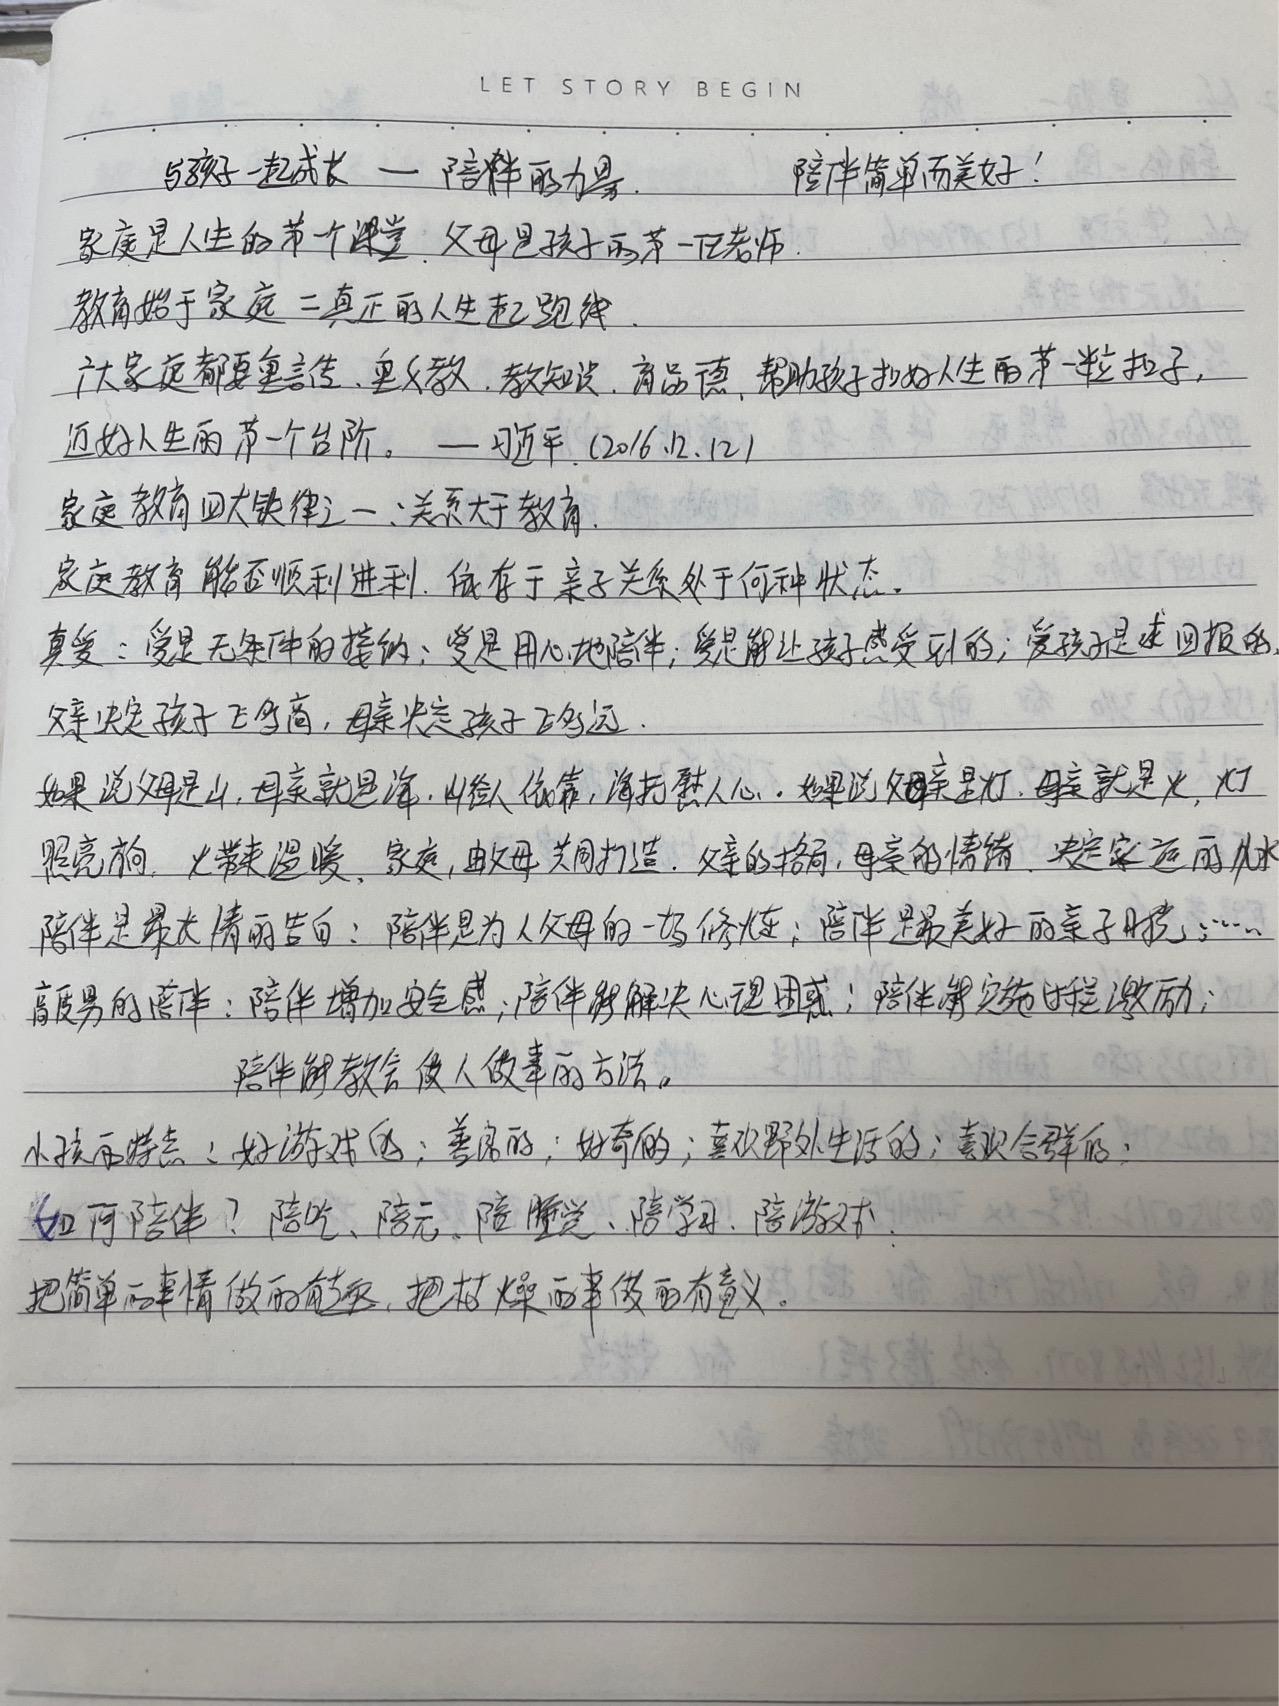 LET STORY BEGIN
与孩子一起成长 — 陪伴的力量. 陪伴简单而美好！
家庭是人生的第一个课堂. 父母是孩子的第一任老师.
教育始于家庭 二真正的人生起跑线.
广大家庭都要重言传、重教、教知识、育品德、帮助孩子扣好人生的第一粒扣子,
迈好人生的第一个台阶。 — 习近平.（2016.12.12）
家庭教育四大铁律之一：关系大于教育.
家庭教育能否顺利进利. 依存于亲子关系处于何种状态。
真爱：爱是无条件的接纳；爱是用心地陪伴；爱是能让孩子感受到的；爱孩子是求回报的.
父亲决定孩子飞多高，母亲决定孩子飞多远.
如果说父母是山, 母亲就是海. 山给人依靠, 海抚慰人心. 如果说父亲是灯. 母亲就是火, 灯
照亮方向, 火带来温暖、家庭, 由父母共同打造. 父亲的格局, 母亲的情绪. 决定家运的风水
陪伴是最大情的告白：陪伴是为人父母的一场修炼；陪伴是最美好的亲子时光；……
高质男的陪伴：陪伴增加安全感；陪伴能解决心理困惑；陪伴能实施过程激励；
陪伴能教会做人做事的方法。
小孩的特点：好游戏的；善良的；好奇的；喜欢野外生活的；喜欢合群的；
如何陪伴？陪吃、陪玩、陪睡觉、陪学习、陪游戏.
把简单的事情做的有趣, 把枯燥的事做的有意义。